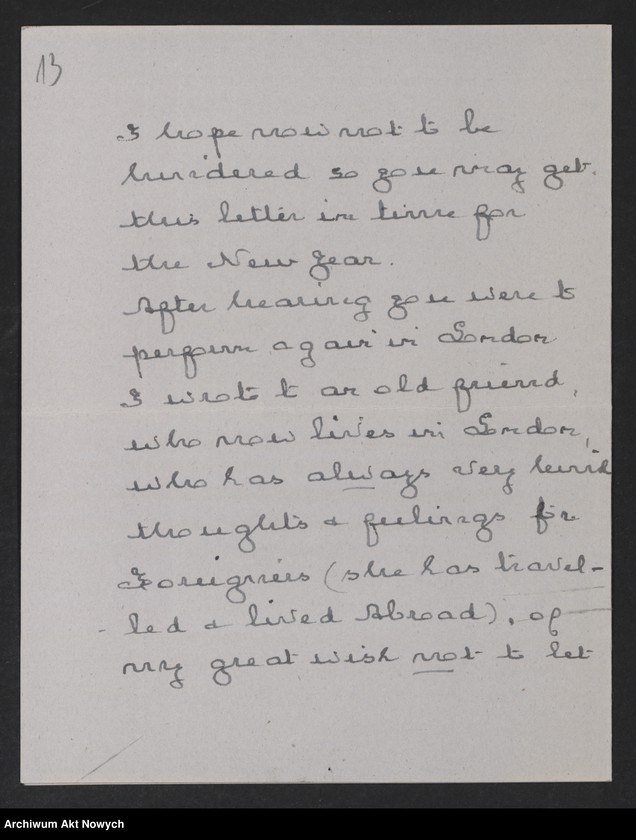 13
I hope now not to be
hindered so you may get
this letter in time for
the New Year.
After hearing you were to
perform again in London
I wrote to an old friend,
who now lives in London,
who has always very kind
thoughts & feelings for
Foreigners (she has travel-
- led & lived Abroad), of
my great wish not to let
Archiwum Akt Nowych